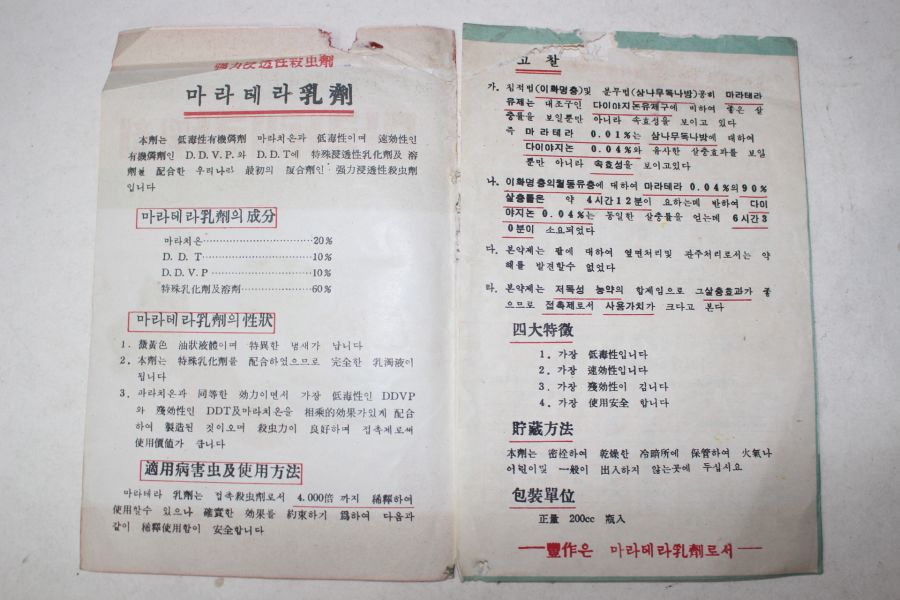 強力浸透性殺虫劑
마라테라乳劑
本劑는 低毒性有機燐劑 마라치온과 低毒性이며 速効性인
有機燐劑인 D.D.V.P.와 D.D.T에 特殊浸透性乳化劑及 溶
劑를 配合한 우리나라 最初의 複合劑인 强力浸透性殺虫劑
입니다
마라테라乳劑의 成分
마라치온 20%
D.D.T 10%
D.D.V.P 10%
特殊乳化劑及溶劑 60%
마라테라乳劑의 性狀
1. 黃色 油狀液體이며 特異한 냄새가 납니다
2. 本劑는 特殊乳化劑를 配合하였으므로 完全한 乳濁液이
됩니다
3. 파라치온과 同等한 効力이면서 가장 低毒性인 DDVP
와 殘効性인 DDT及마라치온을 相乘的効果가있게 配合
하여 製造된 것이오며 殺虫力이 良好하며 접촉제로써
使用價値가 큽니다
適用病害虫及使用方法
마라테라 乳劑는 접촉殺虫劑로서 4.000倍 까지 稀釋하여
使用할수 있으나 確實한 効果를 約束하기 爲하여 다음과
같이 稀釋使用함이 安全합니다
고 찰
가. 침적법(이화명충)및 분무법(삼나무독나방)공히 마라테라
유제는 대조구인 다이야지논유제구에 비하여 좋은 살
충률을 보일뿐만 아니라 속효성을 보이고 있다
즉 마라테라 0.01%는 삼나무독나방에 대하여
다이야지논 0.04%와 유사한 살충효과를 보일
뿐만 아니라 속효성을 보이고있다
나. 이화명충의월동유충에 대하여 마라테라 0.04%의 90%
살충률은 약 4시간12분이 요하는데 반하여 다이
야지논 0.04%는 동일한 살충률을 얻는데 6시간3
0분이 소요되었다
다. 본약제는 팥에 대하여 엽면처리및 관주처리로서는 약
해를 발견할수 없었다
라. 본약제는 저독성 농약의 합제임으로 그살충효과가 좋
으므로 접촉제로서 사용가치가 크다고 본다
四大特徵
1. 가장 低毒性입니다
2. 가장 速効性입니다
3. 가장 殘効性이 깁니다
4. 가장 使用安全 합니다
貯蔵方法
本劑는 密栓하여 乾燥한 冷暗所에 保管하여 火氣나
어린이및 一般이 出入하지 않는곳에 두십시요
包裝單位
正量 200cc 瓶入
—豐作은 마라테라乳劑로서—